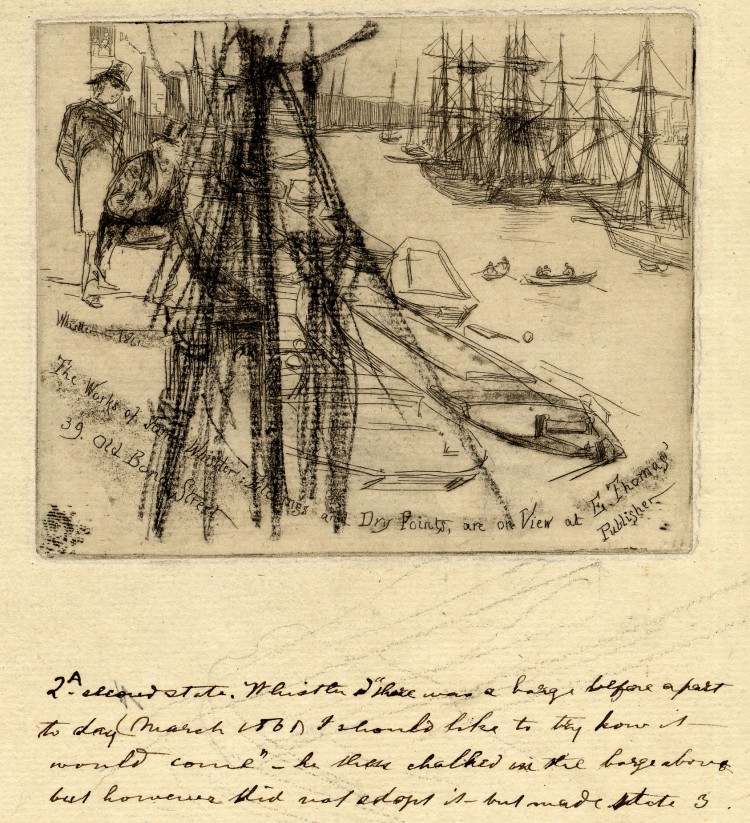 Whistler 1861.
The Works of James Whistler: Etchings and Dry Points, are on View at E. Thomas' Publisher
39. Old Bond Street
2.A second state. Whistler "there was a barge before a part
to day (March 1861) I should like to try how it
would come" – he then chalked in the barge above
but however did not adopt it – but made state 3.